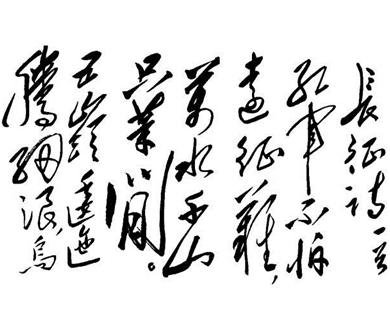 長征詩一首
紅軍不怕
遠征難，
萬水千山
只等閒。
五嶺逶迤
騰細浪，烏